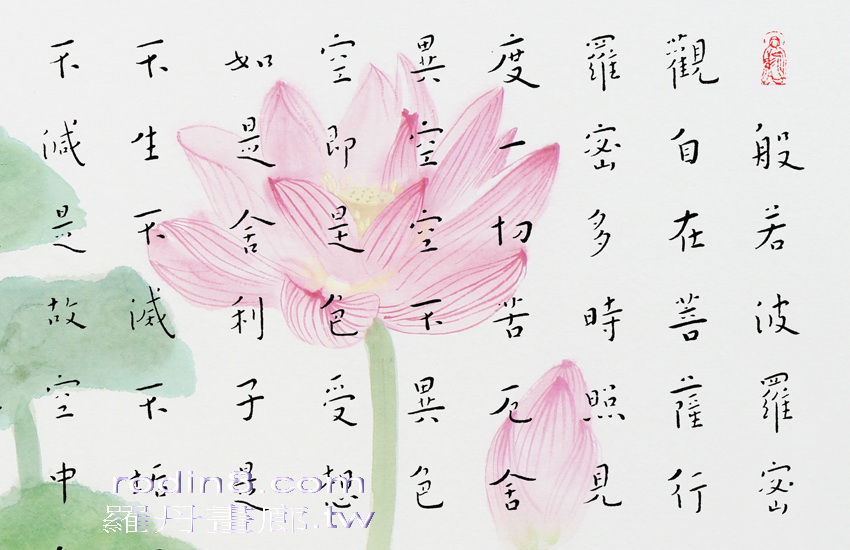 般若波羅密
觀自在菩薩行
羅密多時照見
度一切苦厄舍
異空空不異色
空即是色受想
如是舍利子是
不生不滅不垢
不減是故空中
rodin8.com
羅丹畫廊.tw